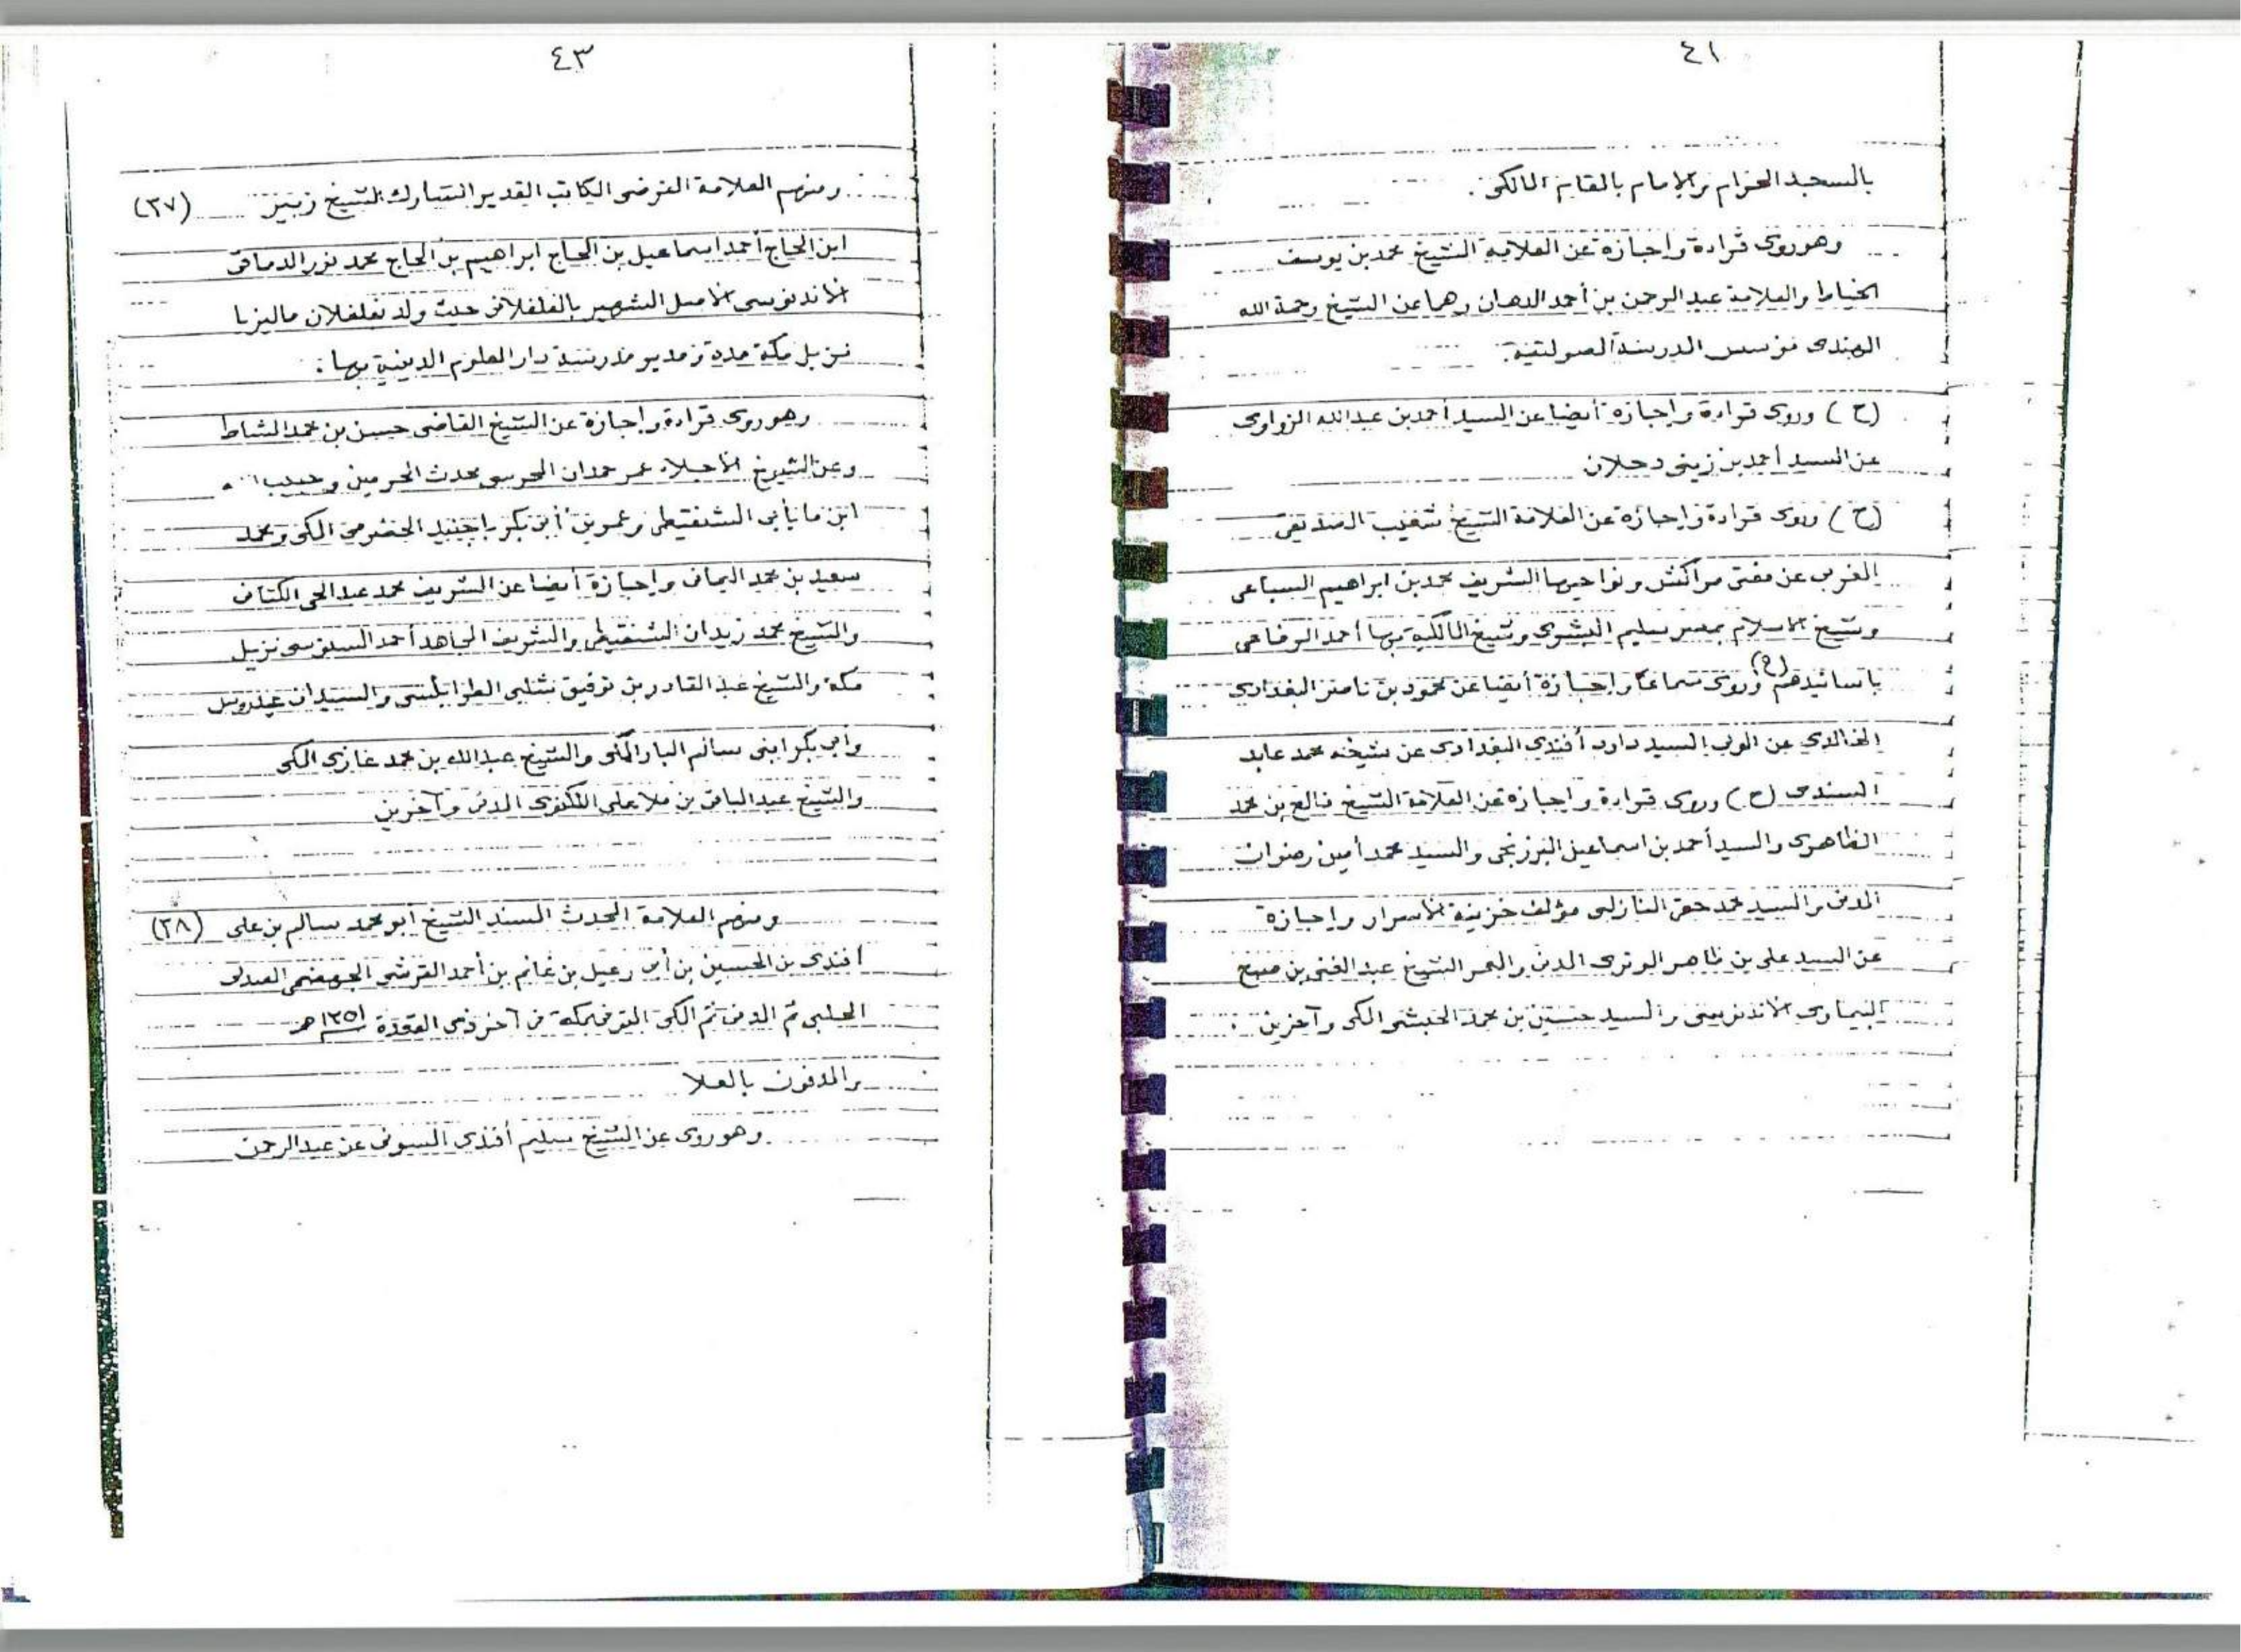 ٤١
بالمسجد الحرام والإمام بالمقام المالكي .
وهو روى قراءة وإجازة عن العلامة الشيخ محمد بن يوسف
الخياط والعلامة عبد الرحمن بن أحمد الدهان وهما عن الشيخ رحمة الله
الهندى مؤسس المدرسة الصولتية .
(ح) وروى قراءة وإجازة أيضا عن السيد أحمد بن عبد الله الزواوى
عن السيد أحمد بن زينى دحلان
(ح) وروى قراءة وإجازة عن العلامة الشيخ شعيب الصديقى
المغربى عن مفتى مراكش ونواحيها الشريف محمد بن ابراهيم السباعى
وشيخ الاسلام بمصر سليم البشرى وشيخ المالكية بها أحمد الرفاعى
باسانيدهم (ح) وروى سماعا وإجازة أيضا عن محمود بن ناصر البغدادى
الخالدى عن السيد داود أفندى البغدادى عن شيخه محمد عابد
السندى (ح) وروى قراءة وإجازة عن العلامة الشيخ فالح بن محمد
الظاهرى والسيد أحمد بن اسماعيل البرزنجى والسيد محمد أمين رضوان
المدنى والسيد محمد حقى النازلى مؤلف خزينة الأسرار وإجازة
عن السيد على بن ظاهر الوترى المدنى والمعمر الشيخ عبد الغنى بن صبيح
البيماوى الاندنوسى والسيد حسين بن محمد الحبشى المكى وآخرين .
٤٣
ومنهم العلامة الفرضى الكاتب القدير المشارك الشيخ زبير (٣٧)
ابن الحاج أحمد اسماعيل بن الحاج ابراهيم بن الحاج محمد نور
الاندنوسى الأصل الشهير بالفلفلانى حيث ولد بفلفلان ماليزيا
نزيل مكة مدة ومدير مدرسة دار العلوم الدينية بها :
وهو روى قراءة وإجازة عن الشيخ القاضى حسن بن محمد المشاط
وعن الشيوخ الأجلاء عمر حمدان المحرسى محدث الحرمين وحبيب الله
ابن مايأبى الشنقيطى وعمر بن أبى بكر باجنيد الحضرمى المكى ومحمد
سعيد بن محمد اليمانى وإجازة أيضا عن الشريف محمد عبد الحى الكتانى
والشيخ محمد زيدان الشنقيطى والشريف المجاهد أحمد السنوسى نزيل
مكة والشيخ عبد القادر بن توفيق شلبى الطرابلسى والسيدان عيدروس
وابى بكر ابنى سالم البار المكى والشيخ عبد الله بن محمد غازى المكى
والشيخ عبد الباقى بن ملا على اللكنوى المدنى وآخرين
ومنهم العلامة المحدث المسند الشيخ أبو محمد سالم بن على (٣٨)
أفندى بن الحسين بن أبى رعيل بن غانم بن أحمد القرشى الجهضمى العبدلى
الحلبى ثم المدنى ثم المكى المتوفى بمكة فى آخر ذى القعدة ١٢٥١ هـ
والمدفون بالمعلا
وهو روى عن الشيخ سليم أفندى عن عبد الرحمن